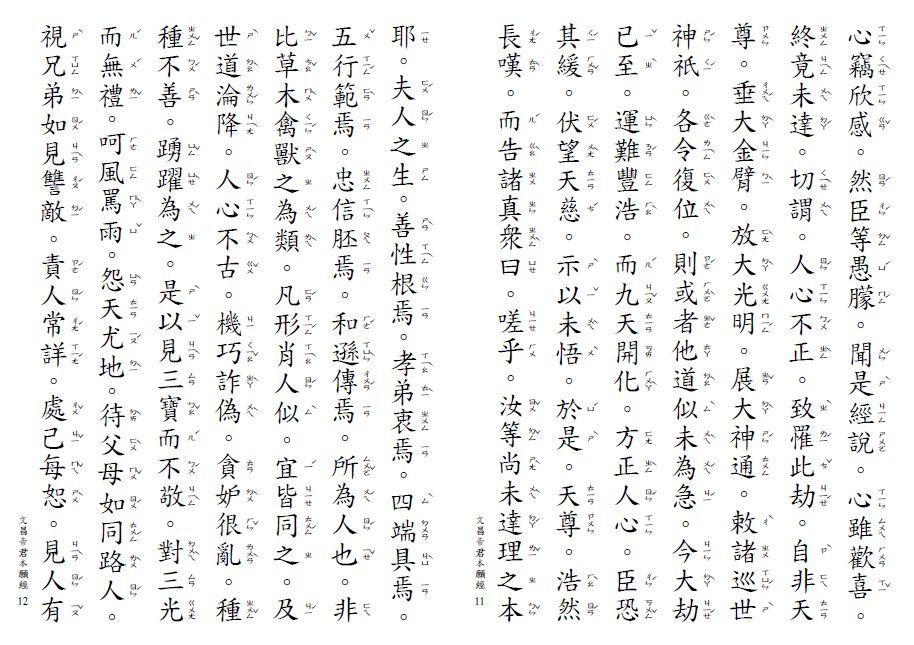 心竊欣感。然臣等愚朦。聞是經說。心雖歡喜。
終竟未達。切謂。人心不正。致罹此劫。自非天
尊。垂大金臂。放大光明。展大神通。敕諸巡世
神祇。各令復位。則或者他道似未為急。今大劫
已至。運難豐浩。而九天開化。方正人心。臣恐
其緩。伏望天慈。示以未悟。於是。天尊。浩然
長嘆。而告諸真衆曰。嗟乎。汝等尚未達理之本
文昌帝君本願經 11
耶。夫人之生。善性根焉。孝弟衷焉。四端具焉。
五行範焉。忠信胚焉。和遜傳焉。所為人也。非
比草木禽獸之為類。凡形肖人似。宜皆同之。及
世道淪降。人心不古。機巧詐偽。貪妒很亂。種
種不善。踴躍為之。是以見三寶而不敬。對三光
而無禮。呵風罵雨。怨天尤地。待父母如同路人。
視兄弟如見讐敵。責人常詳。處己每恕。見人有
文昌帝君本願經 12